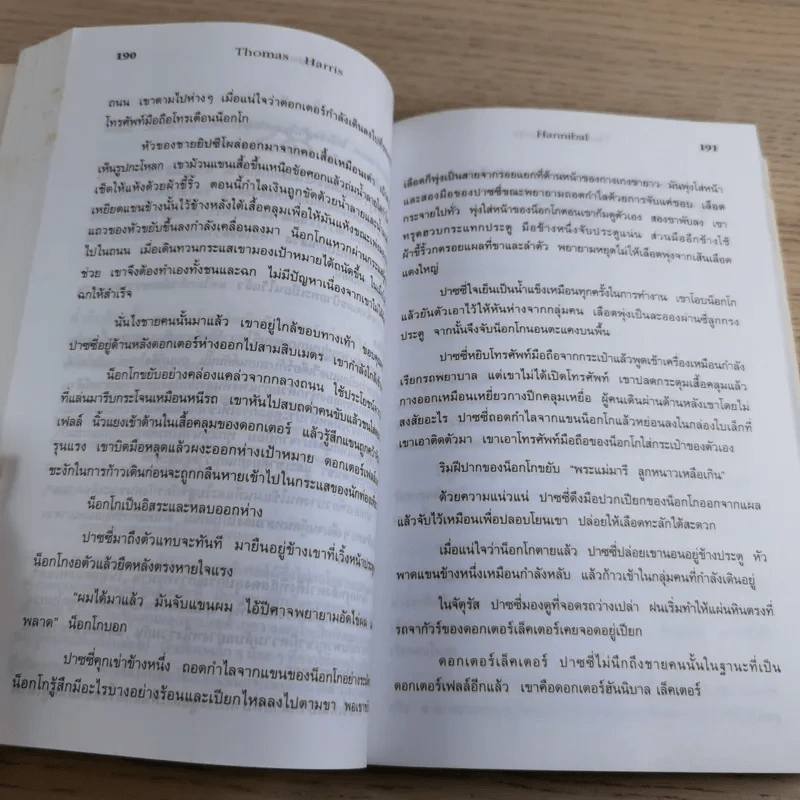 190
Thomas Harris
ถนน เขาตามไปห่างๆ เมื่อแน่ใจว่าดอกเตอร์กำลังเดินลงไป
โทรศัพท์มือถือโทรเตือนน็อกโก
หัวของชายยิปซีโผล่ออกมาจากคอเสื้อเหมือนเต่า
เห็นรูปกะโหลก เขาม้วนแขนเสื้อขึ้นเหนือข้อศอกแล้วถ่มน้ำลาย
เช็ดให้แห้งด้วยผ้าขี้ริ้ว ตอนนี้กำไลเงินถูกขัดด้วยน้ำลายและ
เหยียดแขนข้างนั้นไว้ข้างหลังใต้เสื้อคลุมเพื่อให้มันแห้งขณะ
แถวของหัวขยับขึ้นลงกำลังเคลื่อนลงมา น็อกโกแหวกผ่าน
ไปในถนน เมื่อเดินทวนกระแสเขามองเป้าหมายได้ถนัดขึ้น
ช่วย เขาจึงต้องทำเองทั้งชนและฉก ไม่มีปัญหาเนื่องจากเขา
ฉกให้สำเร็จ
นั่นไงชายคนนั้นมาแล้ว เขาอยู่ใกล้ขอบทางเท้า
ปาซซี่อยู่ด้านหลังดอกเตอร์ห่างออกไปสามสิบเมตร เขา
น็อกโกขยับอย่างคล่องแคล่วจากกลางถนน ใช้ประโยชน์
ที่แล่นมารีบกระโจนเหมือนหนีรถ เขาหันไปสบถด่าคนขับแล้ว
เฟลล์ นิ้วแยงเข้าด้านในเสื้อคลุมของดอกเตอร์ แล้วรู้สึกแขนถูก
รุนแรง เขาบิดมือหลุดแล้วผงะออกห่างเป้าหมาย ดอกเตอร์
ชะงักในการก้าวเดินก่อนจะถูกกลืนหายเข้าไปในกระแสของนักท่อง
น็อกโกเป็นอิสระและหลบออกห่าง
ปาซซี่มาถึงตัวแทบจะทันที มายืนอยู่ข้างเขาที่เวิ้งหน้า
น็อกโกงอตัวแล้วยืดหลังตรงหายใจแรง
“ผมได้มาแล้ว มันจับแขนผม ไอ้ปีศาจพยายามอัดไข่ผม
พลาด” น็อกโกบอก
ปาซซี่คุกเข่าข้างหนึ่ง ถอดกำไลจากแขนของน็อกโกอย่าง
น็อกโกรู้สึกมีอะไรบางอย่างร้อนและเปียกไหลลงไปตามขา พอเขา
Hannibal
191
เลือดก็พุ่งเป็นสายจากรอยแยกที่ด้านหน้าของกางเกงขายาว มันพุ่งใส่หน้า
และสองมือของปาซซี่ขณะพยายามถอดกำไลด้วยการจับแต่ขอบ เลือด
กระจายไปทั่ว พุ่งใส่หน้าของน็อกโกตอนเขาก้มดูตัวเอง สองขาพับลง เขา
ทรุดฮวบกระแทกประตู มือข้างหนึ่งจับประตูแน่น ส่วนมืออีกข้างใช้
ผ้าขี้ริ้วกดรอยแผลที่ขาและลำตัว พยายามหยุดไม่ให้เลือดพุ่งจากเส้นเลือด
แดงใหญ่
ปาซซี่ใจเย็นเป็นน้ำแข็งเหมือนทุกครั้งในการทำงาน เขาโอบน็อกโก
แล้วยันตัวเอาไว้ให้หันห่างจากกลุ่มคน เลือดพุ่งเป็นละอองผ่านซี่ลูกกรง
ประตู จากนั้นจึงจับน็อกโกนอนตะแคงบนพื้น
ปาซซี่หยิบโทรศัพท์มือถือจากกระเป๋าแล้วพูดเข้าเครื่องเหมือนกำลัง
เรียกรถพยาบาล แต่เขาไม่ได้เปิดโทรศัพท์ เขาปลดกระดุมเสื้อคลุมแล้ว
กางออกเหมือนเหยี่ยวกางปีกคลุมเหยื่อ ผู้คนเดินผ่านด้านหลังเขาโดยไม่
สงสัยอะไร ปาซซี่ถอดกำไลจากแขนน็อกโกแล้วหย่อนลงในกล่องใบเล็กที่
เขาเอาติดตัวมา เขาเอาโทรศัพท์มือถือของน็อกโกใส่กระเป๋าของตัวเอง
ริมฝีปากของน็อกโกขยับ “พระแม่มารี ลูกหนาวเหลือเกิน”
ด้วยความแน่วแน่ ปาซซี่ดึงมือปวกเปียกของน็อกโกออกจากแผล
แล้วจับไว้เหมือนเพื่อปลอบโยนเขา ปล่อยให้เลือดทะลักได้สะดวก
เมื่อแน่ใจว่าน็อกโกตายแล้ว ปาซซี่ปล่อยเขานอนอยู่ข้างประตู หัว
พาดแขนข้างหนึ่งเหมือนกำลังหลับ แล้วก้าวเข้าในกลุ่มคนที่กำลังเดินอยู่
ในจัตุรัส ปาซซี่มองดูที่จอดรถว่างเปล่า ฝนเริ่มทำให้แผ่นหินตรงที่
รถจากัวร์ของดอกเตอร์เล็คเตอร์เคยจอดอยู่เปียก
ดอกเตอร์เล็คเตอร์ ปาซซี่ไม่นึกถึงชายคนนั้นในฐานะที่เป็น
ดอกเตอร์เฟลล์อีกแล้ว เขาคือดอกเตอร์ฮันนิบาล เล็คเตอร์